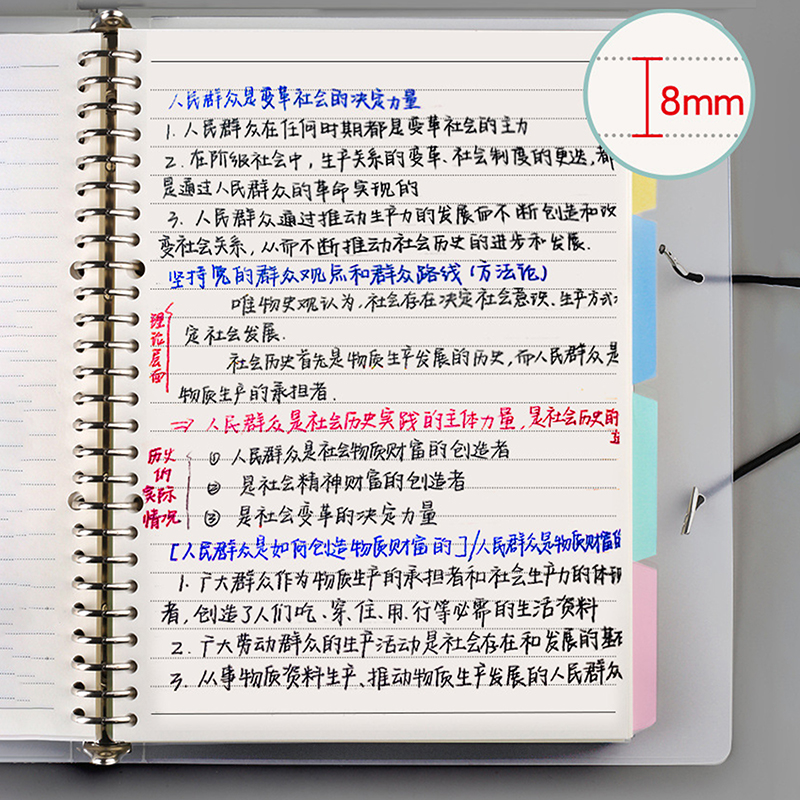 8mm
人民群众是变革社会的决定力量
1. 人民群众在任何时期都是变革社会的主力
2. 在阶级社会中，生产关系的变革、社会制度的更迭，都
是通过人民群众的革命实现的
3. 人民群众通过推动生产力的发展而不断创造和改
变社会关系，从而不断推动社会历史的进步和发展.
坚持党的群众观点和群众路线（方法论）
理论层面
唯物史观认为，社会存在决定社会意识、生产方式
定社会发展.
社会历史首先是物质生产发展的历史，而人民群众是
物质生产的承担者.
⇒ 人民群众是社会历史实践的主体力量，是社会历史的
历史的实际情况
① 人民群众是社会物质财富的创造者
② 是社会精神财富的创造者
③ 是社会变革的决定力量
[人民群众是如何创造物质财富的]/人民群众是物质财富的
1. 广大群众作为物质生产的承担者和社会生产力的体现
者，创造了人们吃、穿、住、用、行等必需的生活资料
2. 广大劳动群众的生产活动是社会存在和发展的基
3. 从事物质资料生产、推动物质生产发展的人民群众